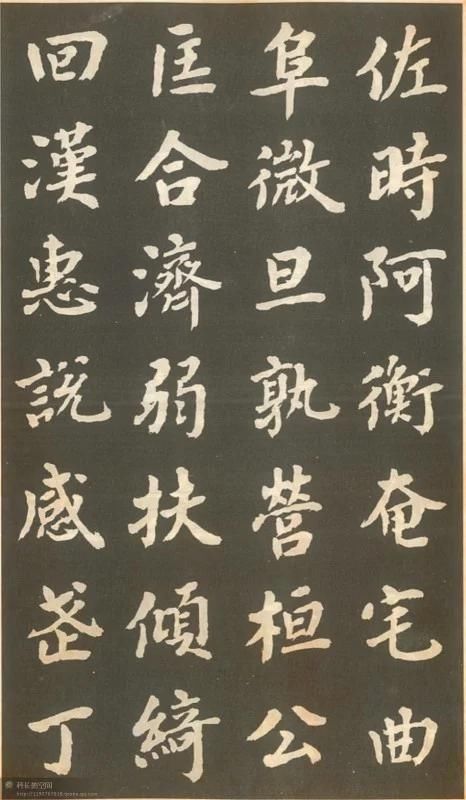 佐時阿衡奄宅曲
阜微旦孰營桓公
匡合濟弱扶傾綺
回漢惠說感武丁
科长的空间